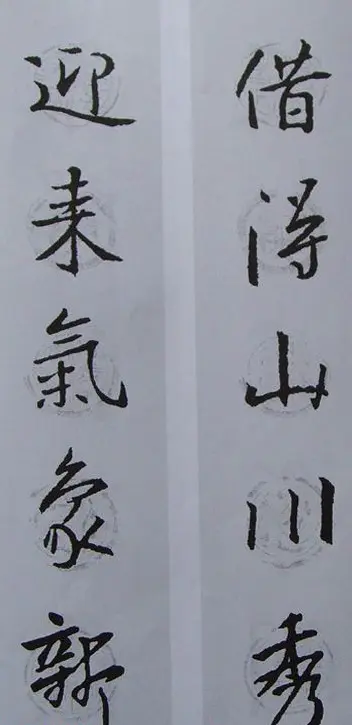 借得山川秀
迎来氣象新